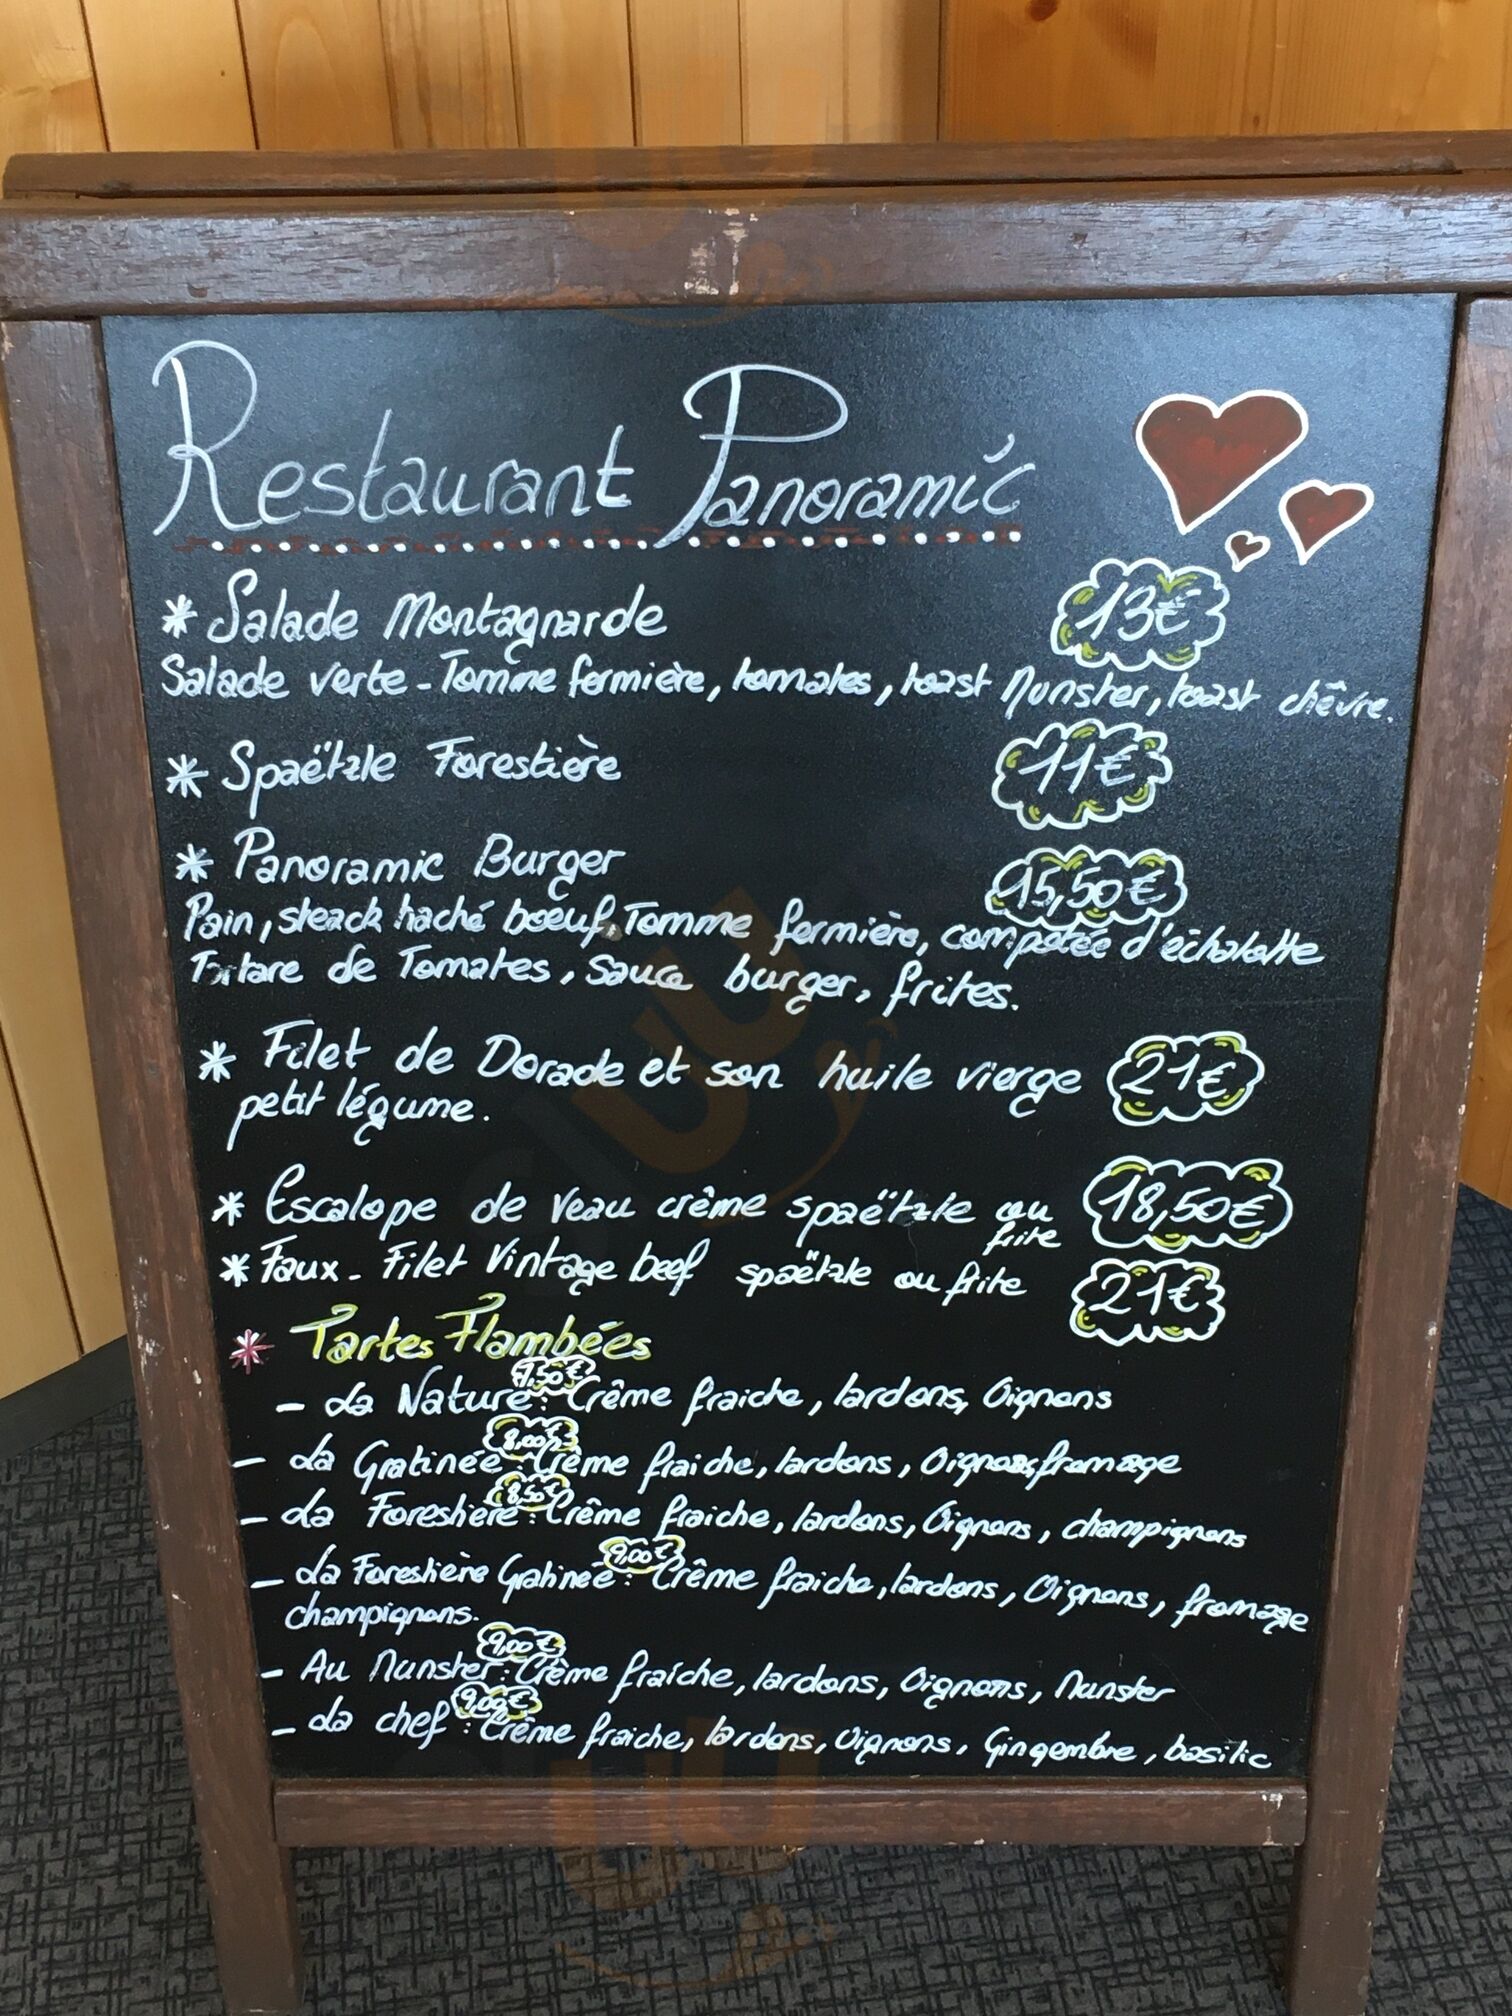 Restaurant Panoramic
* Salade Montagnarde 13€
Salade verte - Tomme fermière, tomates, toast Munster, toast chêvre.
* Spaëtzle Forestière 11€
* Panoramic Burger 15,50€
Pain, steack haché boeuf, Tomme fermière, compotée d'échalotte
Tartare de Tomates, sauce burger, frites.
* Filet de Dorade et son huile vierge 21€
petit légume.
* Escalope de veau crême spaëtzle ou 18,50€
frite
* Faux-Filet Vintage beef spaëtzle ou frite 21€
* Tartes Flambées
- La Nature : 7,50€ Crême fraiche, lardons, Oignons
- La Gratinée : 8,00€ Crême fraiche, lardons, Oignons, fromage
- La Forestière : 8,50€ Crême fraiche, lardons, Oignons, champignons
- La Forestière Gratinée : 9,00€ Crême fraiche, lardons, Oignons, fromage
champignons.
- Au Munster : 9,00€ Crème fraîche, lardons, Oignons, Munster
- La chef : 9,00€ Crême fraiche, lardons, Oignons, Gingembre, basilic